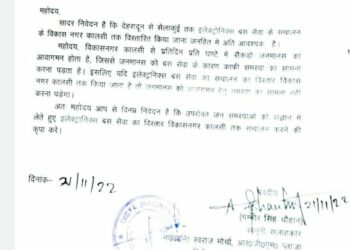 महोदय,
सादर निवेदन है कि देहरादून से सेलाकुई तक इलेक्ट्रानिक्स बस सेवा के संचालन
के विकास नगर कालसी तक विस्तारित किया जाना जनहित में अति आवश्यक है।
महोदय, विकासनगर कालसी से प्रतिदिन प्रति घण्टे में सैकड़ो जनमानस का
आवागमन होता है, जिससे जनमानस को बस सेवा के कारण काफी समस्या का सामना
करना पड़ता है। इसलिए यदि इलेक्ट्रानिक्स बस सेवा का संचालन का विस्तार विकास
नगर कालसी तक किया जाता है तो जनमानस को आवागमन हेतु समस्या का सामना नहीं
करना पड़ेगा।
अतः महोदय आप से विनम्र निवेदन है कि उपरोक्त जन समस्याओं को संज्ञान में
लेते हुए इलेक्ट्रानिक्स बस सेवा का विस्तार विकासनगर कालसी तक संचालन करने की
कृपा करें।
दिनांक- 21/11/22
21/11/22
(गम्भीर सिंह चौहान)
कानूनी सलाहकार
स्वराज मोर्चा, आर०डी०एम० प्लाजा